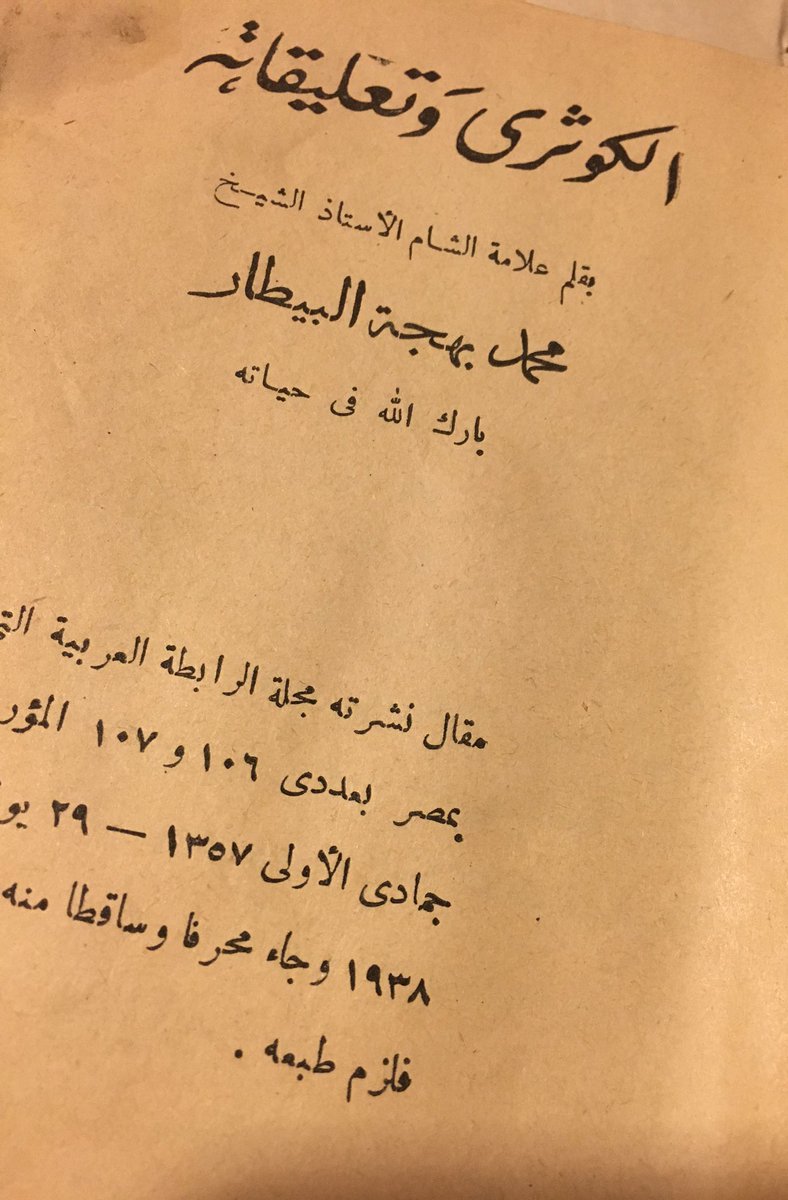 الكوثرى وَتعليقاته
بقلم علامة الشام الأستاذ الشيخ
محمد بهجة البيطار
بارك الله فى حياته
مقال نشرته مجلة الرابطة العربية
بمصر بعددى ١٠٦ و ١٠٧
جمادى الأولى ١٣٥٧ — ٢٩
١٩٣٨ وجاء محرفا وساقطا منه
فلزم طبعه .